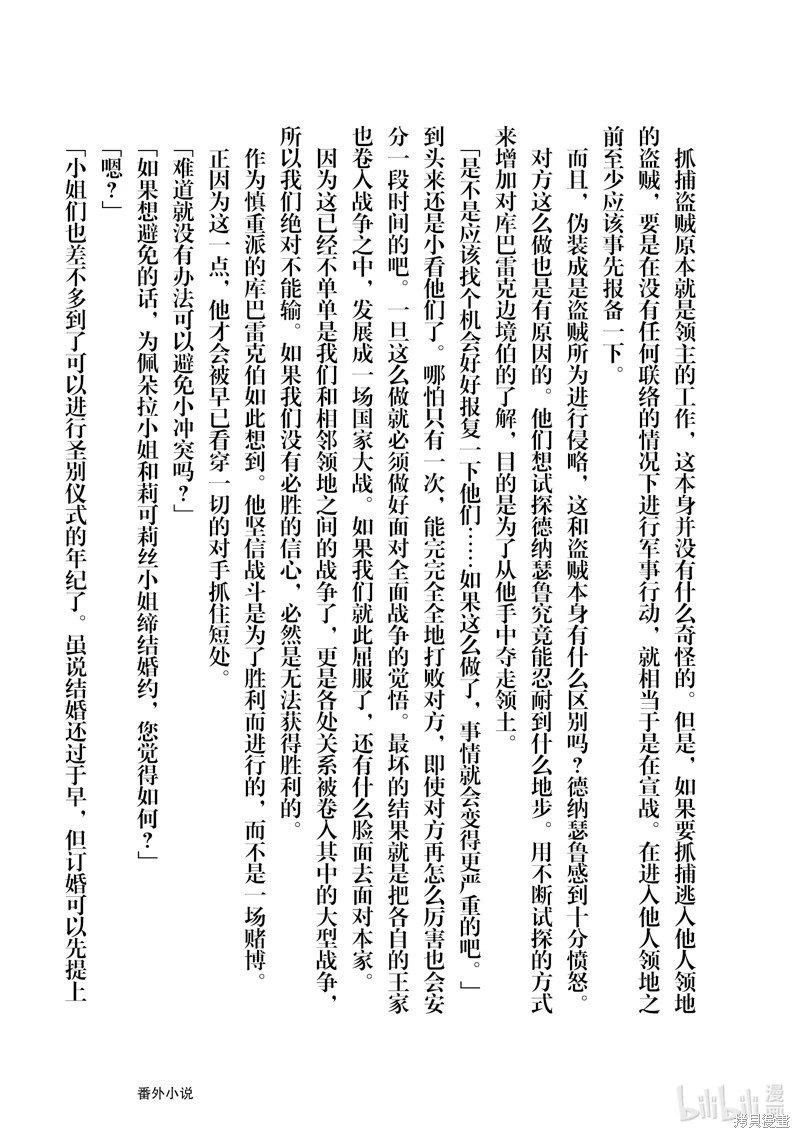 抓捕盗贼原本就是领主的工作，这本身并没有什么奇怪的。但是，如果要抓捕逃入他人领地
的盗贼，要是在没有任何联络的情况下进行军事行动，就相当于是在宣战。在进入他人领地之
前至少应该事先报备一下。
而且，伪装成是盗贼所为进行侵略，这和盗贼本身有什么区别吗？德纳瑟鲁感到十分愤怒。
对方这么做也是有原因的。他们想试探德纳瑟鲁究竟能忍耐到什么地步。用不断试探的方式
来增加对库巴雷克边境伯的了解，目的是为了从他手中夺走领土。
「是不是应该找个机会好好报复一下他们……如果这么做了，事情就会变得更严重的吧。」
到头来还是小看他们了。哪怕只有一次，能完完全全地打败对方，即使对方再怎么厉害也会安
分一段时间的吧。一旦这么做就必须做好面对全面战争的觉悟。最坏的结果就是把各自的王家
也卷入战争之中，发展成一场国家大战。如果我们就此屈服了，还有什么脸面去面对本家。
因为这已经不单单是我们和相邻领地之间的战争了，更是各处关系被卷入其中的大型战争，
所以我们绝对不能输。如果我们没有必胜的信心，必然是无法获得胜利的。
作为慎重派的库巴雷克伯如此想到。他坚信战斗是为了胜利而进行的，而不是一场赌博。
正因为这一点，他才会被早已看穿一切的对手抓住短处。
「难道就没有办法可以避免小冲突吗？」
「如果想避免的话，为佩朵拉小姐和莉可莉丝小姐缔结婚约，您觉得如何？」
「嗯？」
「小姐们也差不多到了可以进行圣别仪式的年纪了。虽说结婚还过于早，但订婚可以先提上
番外小说
bilibili漫画
拷贝漫畫